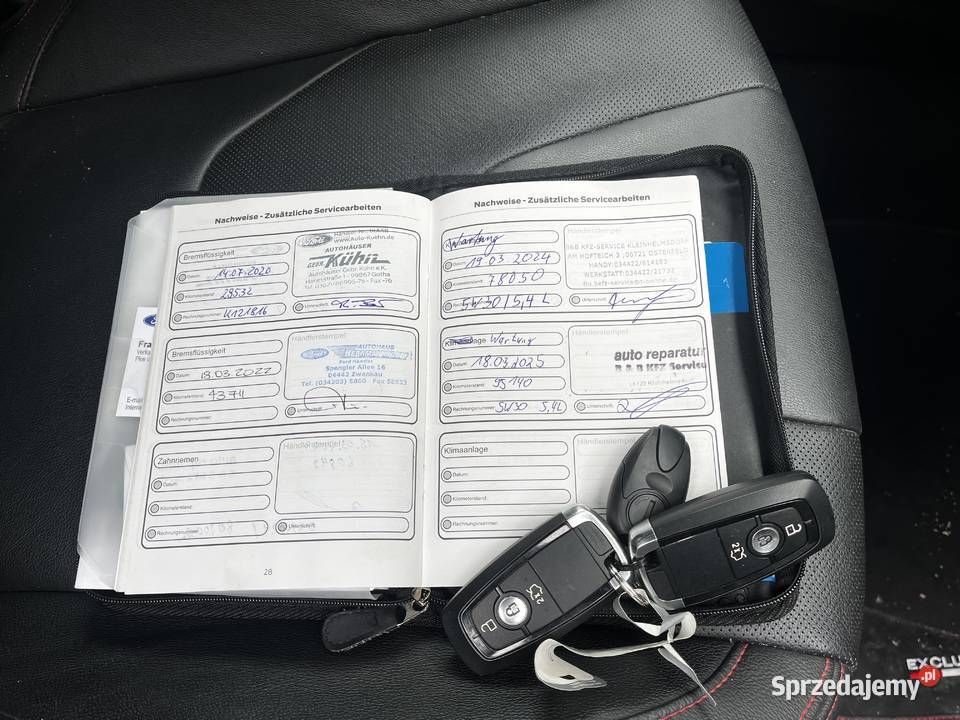 Nachweise - Zusätzliche Servicearbeiten
Bremsflüssigkeit
Datum: 14.07.2020
Kilometerstand: 29532
Rechnungsnummer: K121816
www.Auto-Kuehn.de
AUTOHÄUSER
GEBR. Kühn
Autohäuser Gebr. Kühn e.K.
99867 Gotha
Unterschrift:
Bremsflüssigkeit
Datum: 18.03.2022
Kilometerstand: 43711
Rechnungsnummer:
Händlerstempel
AUTOHAUS
Ford Händler
Spengler Allee 16
04442 Zwenkau
Tel. (034203) 5860
Unterschrift:
Zahnriemen
Datum:
Kilometerstand:
Rechnungsnummer:
Händlerstempel
Unterschrift:
28
Nachweise - Zusätzliche Servicearbeiten
Wartung
Datum: 19.03.2024
Kilometerstand: 78050
5W30/5,4L
Händlerstempel
KFZ-SERVICE KLEINHELMSDORF
AM HOFTEICH 3; 06721 OSTERFELD
HANDY:
WERKSTATT:034422/21732
Unterschrift:
Klimaanlage Wartung
Datum: 18.03.2025
Kilometerstand: 95140
Rechnungsnummer: 5W30 5,4L
Händlerstempel
auto reparatur
KFZ Service
Unterschrift:
Klimaanlage
Datum:
Kilometerstand:
Rechnungsnummer:
Händlerstempel
2x
2x
EXCLU
Sprzedajemy.pl